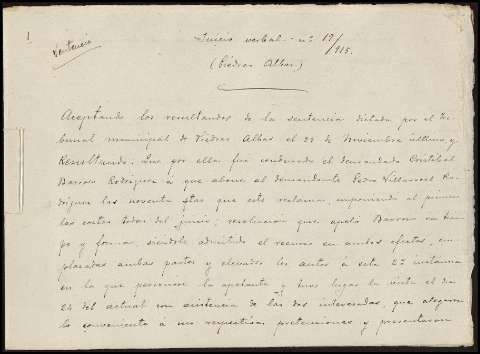 1
Sentencia
Juicio verbal - nº 19/915.
(Piedras Albas)
Aceptando los resultandos de la sentencia dictada por el Tri-
bunal municipal de Piedras Albas el 29 de Noviembre último y
Resultando: Que por ella fue condenado el demandado Cristobal
Barroso Rodriguez á que abone al demandante Pedro Villarroel Ro-
driguez las noventa ptas que este reclama, imponiendo al primero
las costas todas del juicio; resolución que apeló Barroso en tiem-
po y forma, siéndole admitido el recurso en ambos efectos, em-
plazadas ambas partes y elevados los autos á esta 2ª instancia
en la que personose la apelante y tuvo lugar la vista el dia
24 del actual con asistencia de las dos interesadas, que alegaron
lo conveniente á sus respectivas pretensiones y presentaron